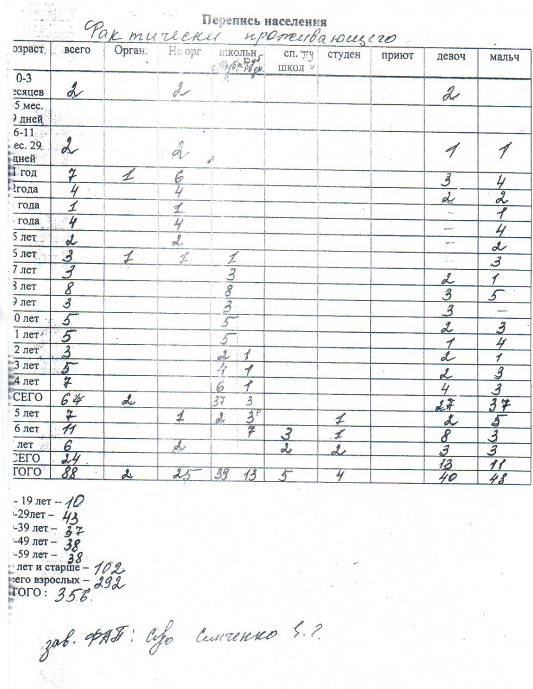 Перепись населения
Фактически проживающего
озраст всего Орган. Не орг школьн сп. ту школ студен приют девоч мальч
0-3
есяцев 2 2 2
5 мес.
9 дней
6-11
ес. 29
дней 2 2 1 1
1 год 7 1 6 3 4
2года 4 4 2 2
года 1 1 - 1
года 4 4 - 4
5 лет 2 2 - 2
6 лет 3 1 1 1 3
7 лет 3 3 2 1
8 лет 8 8 3 5
9 лет 3 3 3 -
0 лет 5 5 2 3
1 лет 5 5 1 4
2 лет 3 2 1 2 1
3 лет 5 4 1 2 3
4 лет 7 6 1 4 3
СЕГО 64 2 37 3 27 37
5 лет 7 1 2 3 1 2 5
6 лет 11 7 3 1 8 3
лет 6 2 2 2 3 3
СЕГО 24 13 11
ТОГО 88 2 25 39 13 5 4 40 48
- 19 лет -- 10
-29лет – 43
-39 лет – 37
-49 лет – 38
-59 лет – 38
лет и старше – 102
его взрослых – 292
ТОГО : 356.
зав. ФАП: Семченко